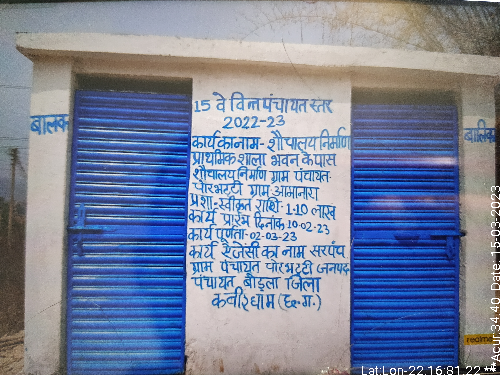 15 वे वित्त पंचायत स्तर
2022-23
कार्य का नाम- शौचालय निर्माण
प्राथमिक शाला भवन के पास
शौचालय निर्माण ग्राम पंचायत-
चोरभट्टी ग्राम आमानारा
प्रशा-स्वीकृत राशि- 1.10 लाख
कार्य प्रारंभ दिनांक 10-02-23
कार्य पूर्णता-02-03-23
कार्य ऐजेंसी का नाम सरपंच
ग्राम पंचायत चोरभट्टी जनपद
पंचायत बोड़ला जिला
कबीरधाम (छ.ग.)
बालक
Lat:Lon-22.16.81.22
Acur:34.40 Date: 15-03-2023
redmi